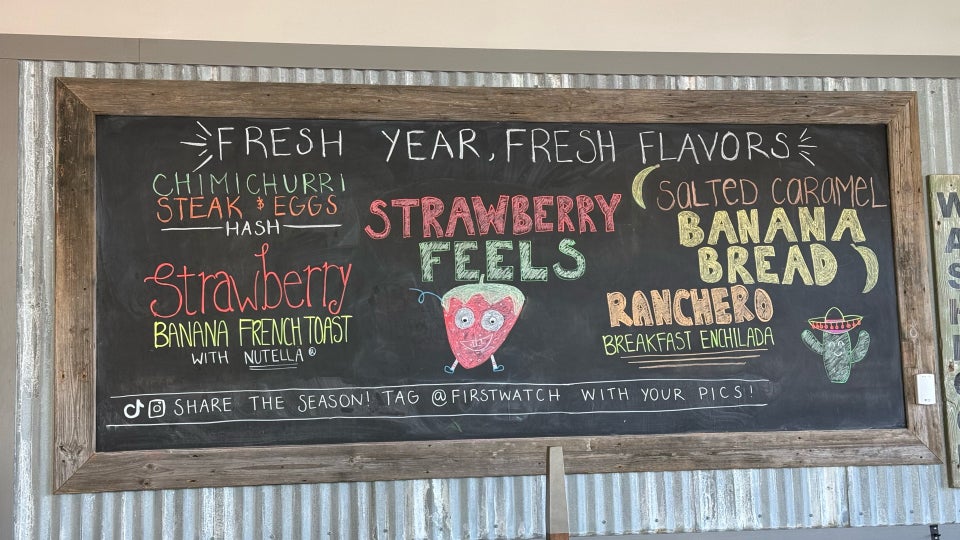 FRESH YEAR, FRESH FLAVORS
CHIMICHURRI
STEAK & EGGS
HASH
Strawberry
BANANA FRENCH TOAST
WITH NUTELLA®
STRAWBERRY
FEELS
SALTED CARAMEL
BANANA
BREAD
RANCHERO
BREAKFAST ENCHILADA
SHARE THE SEASON! TAG @FIRSTWATCH WITH YOUR PICS!